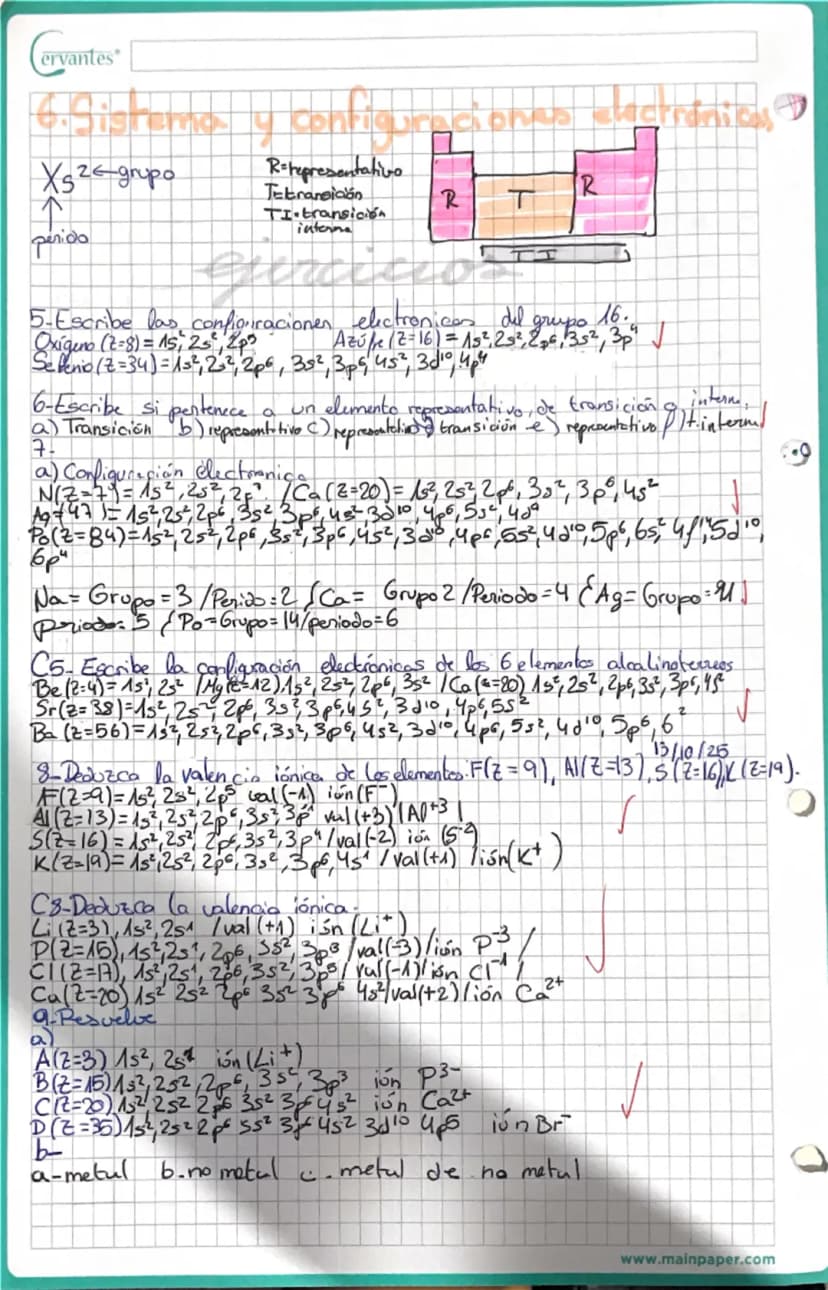 Cervantes®
6. Sistema y configuraciones electrónicas
Xs² ← grupo
↑
perido
R=representativo
T=transición
TI=transición
interna
R
T
R
TI
ejercicios
5-Escribe las configuraciones electronicas del grupo 16.
Oxígeno (Z=8) = 1s², 2s², 2p⁵ Azúfre (Z=16) = 1s², 2s², 2p6, 3s², 3p⁴
Selenio (Z=34) = 1s², 2s², 2p⁶, 3s², 3p⁶, 4s², 3d¹⁰, 4p⁴
6-Escribe si pertenece a un elemento representativo, de transición o interna.
a) Transición b) representativo c) representativo d) transición e) representativo f) t. interna
7.
a) Configuración electronica
N(Z=7) = 1s², 2s², /Ca (Z=20) = 1s², 2s², 2p⁶, 3s², 3p⁶, 4s²
Ag = 1s², 2s², 2p⁶, 3s², 3p⁶, 4s², 3d¹⁰, 4p⁶, 5s², 4d⁹
Po (Z=84) = 1s², 2s², 2p⁶, 3s², 3p⁶, 4s², 3d¹⁰, 4p⁶, 5s², 4d¹⁰, 5p⁶, 6s², 4f¹⁴, 5d¹⁰,
6p⁴
Na = Grupo = 3 /Perido = 2 / Ca = Grupo 2 /Periodo = 4 { Ag = Grupo =
5 { Po = Grupo = 14/periodo = 6
C5- Escribe la configuración electrónicas de los 6 elementos alcalinoterreos
Be (Z=4) = 1s², 2s² /Mg (Z=12) 1s², 2s², 2p⁶, 3s² /Ca (Z=20) 1s², 2s², 2p⁶, 3s², 3p⁶, 4s²
Sr (Z=38) = 1s², 2s², 2p⁶, 3s², 3p⁶, 4s², 3d10, 4p⁶, 5s²
Ba (Z=56) = 1s², 2s2, 2p⁶, 3s², 3p⁶, 4s², 3d¹⁰, 4p⁶, 5s², 4d¹⁰, 5p⁶, 6²
13/10/25
8-Deduzca la valencia iónica de los elementos: F(Z=9), Al(Z=13), S(Z=16), K(Z=19).
F(Z=9) = 1s², 2s², 2p⁵ val(-1) ión (F⁻)
Al (Z=13) = 1s², 2s², 2p⁶, 3s², 3p¹ val (+3) | Al⁺³ |
S(Z=16) = 1s², 2s², 2p⁶, 3s², 3p⁴ / val(-2) ión (S⁻²)
K(Z=19) = 1s², 2s², 2p⁶, 3s², 3p⁶, 4s¹ / val (+1) / ión (K⁺)
C8-Deduzca la valencia iónica.
Li (Z=3), 1s², 2s1 / val (+1) ión (Li⁺)
P(Z=15), 1s², 2s¹, 2p⁶, 3s², 3p³ /val(-3)/ión P⁻³ /
Cl (Z=17), 1s², 2s¹, 2p⁶, 3s², 3p⁵ / val(-1)/ión Cl⁻¹ /
Ca(Z=20) 1s² 2s² 2p⁶ 3s² 3p⁶ 4s²/val(+2)/ión Ca²⁺
9-Resuelve
a)
A(Z=3) 1s², 2s¹ ión (Li⁺)
B(Z=15) 1s², 2s2, 2p⁶, 3s², 3p³ ión P³⁻
C(Z=20) 1s² 2s2 2p⁶ 3s2 3p⁶ 4s² ión Ca²⁺
D(Z=35) 1s², 2s2 2p⁶ 3s² 3p⁶ 4s2 3d10 4p5 ión Br⁻
b-
a-metal b. no metal c. metal d- no metal
www.mainpaper.com